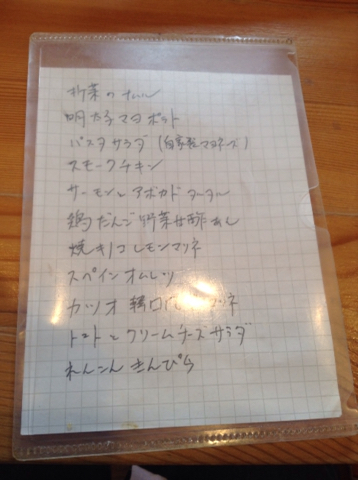 野菜のナムル
明太子マヨポット
パスタサラダ (自家製マヨネーズ)
スモークチキン
サーモンとアボカドタルタル
鶏だんご野菜甘酢あん
焼キノコレモンマリネ
スペインオムレツ
カツオ 韓口 マリネ
トマトとクリームチーズサラダ
れんこんきんぴら